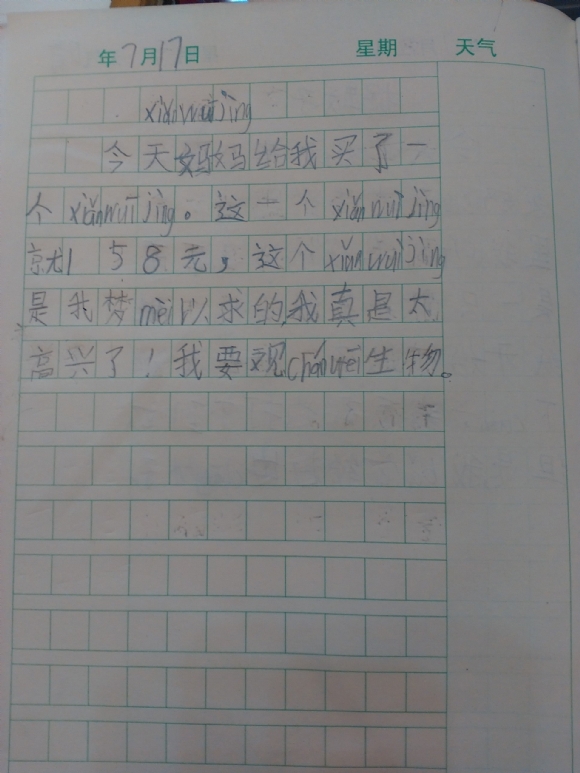 年7月17日 星期 天气
xiǎn wēi jìng
今天妈妈给我买了一
个xiǎn wēi jìng。这一个xiǎn wēi jìng
就158元,这个xiǎn wēi jìng
是我梦mèi以求的我真是太
高兴了!我要观chá wēi生物。